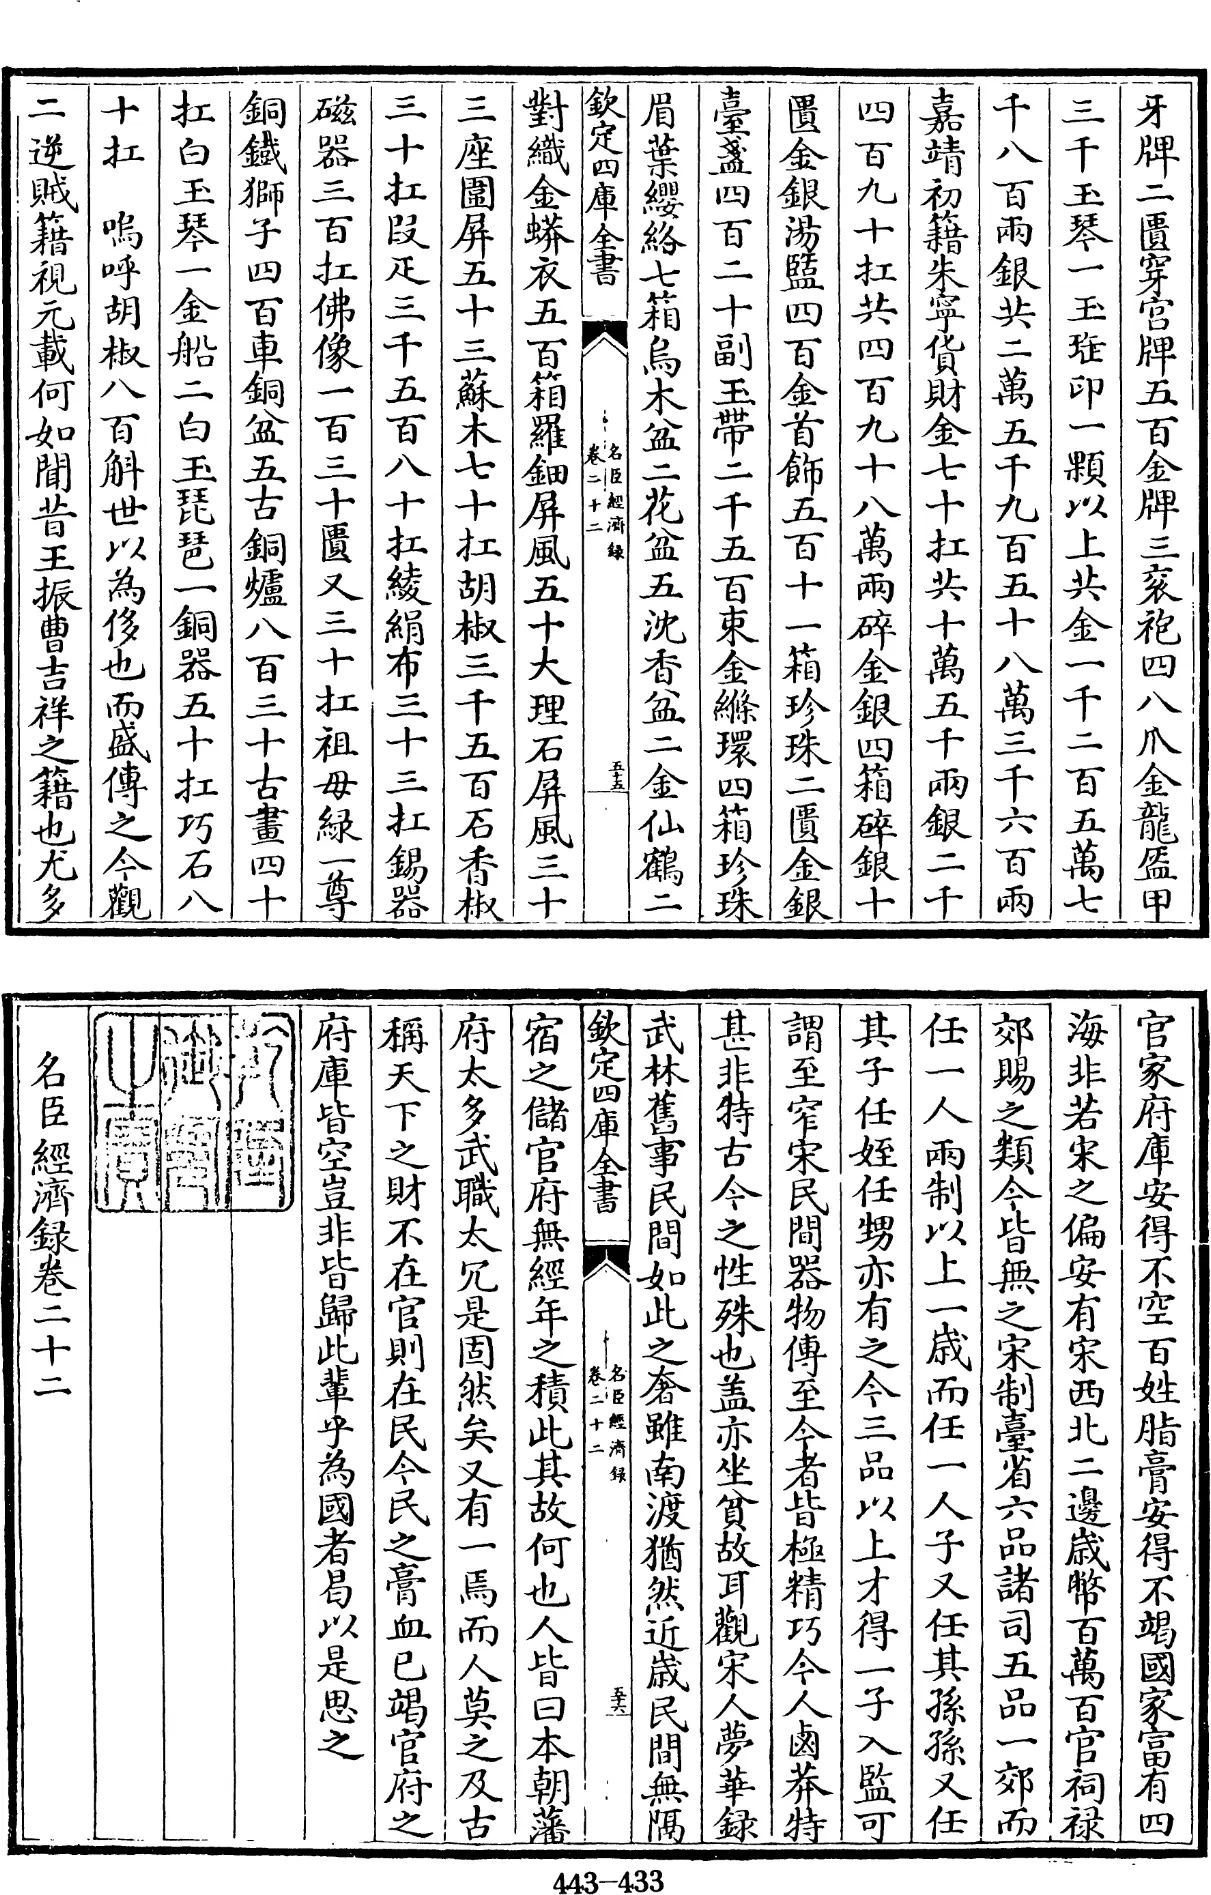 牙牌二匱穿宮牌五百金牌三衮袍四八爪金龍盔甲
三千玉琴一玉琁印一顆以上共金一千二百五萬七
千八百兩銀共二萬五千九百五十八萬三千六百兩
嘉靖初籍朱寧貨財金七十扛共十萬五千兩銀二千
四百九十扛共四百九十八萬兩碎金銀四箱碎銀十
匱金銀湯盬四百金首飾五百十一箱珍珠二匱金銀
臺盞四百二十副玉帶二千五百束金縧環四箱珍珠
眉葉纓絡七箱烏木盆二花盆五沈香盆二金仙鶴二
欽定四庫全書
名臣經濟錄
卷二十二
五十五
對織金蟒衣五百箱羅鈿屏風五十大理石屏風三十
三座圍屏五十三蘇木七十扛胡椒三千五百石香椒
三十扛段疋三千五百八十扛綾絹布三十三扛錫器
磁器三百扛佛像一百三十匱又三十扛祖母緑一尊
銅鐵獅子四百車銅盆五古銅爐八百三十古畫四十
扛白玉琴一金船二白玉琵琶一銅器五十扛巧石八
十扛　嗚呼胡椒八百斛世以為侈也而盛傳之今觀
二逆賊籍視元載何如聞昔王振曹吉祥之籍也尤多
官家府庫安得不空百姓脂膏安得不竭國家富有四
海非若宋之偏安有宋西北二邊歳幣百萬百官祠禄
郊賜之類今皆無之宋制臺省六品諸司五品一郊而
任一人兩制以上一歳而任一人子又任其孫孫又任
其子任姪任甥亦有之今三品以上才得一子入監可
謂至窄宋民間器物傳至今者皆極精巧今人鹵莽特
甚非特古今之性殊也盖亦坐貧故耳觀宋人夢華録
武林舊事民間如此之奢雖南渡猶然近歳民間無隔
欽定四庫全書
名臣經濟錄
卷二十二
五十六
宿之儲官府無經年之積此其故何也人皆曰本朝藩
府太多武職太冗是固然矣又有一焉而人莫之及古
稱天下之財不在官則在民今民之膏血已竭官府之
府庫皆空豈非皆歸此輩乎為國者曷以是思之
名臣經濟録卷二十二
443-433